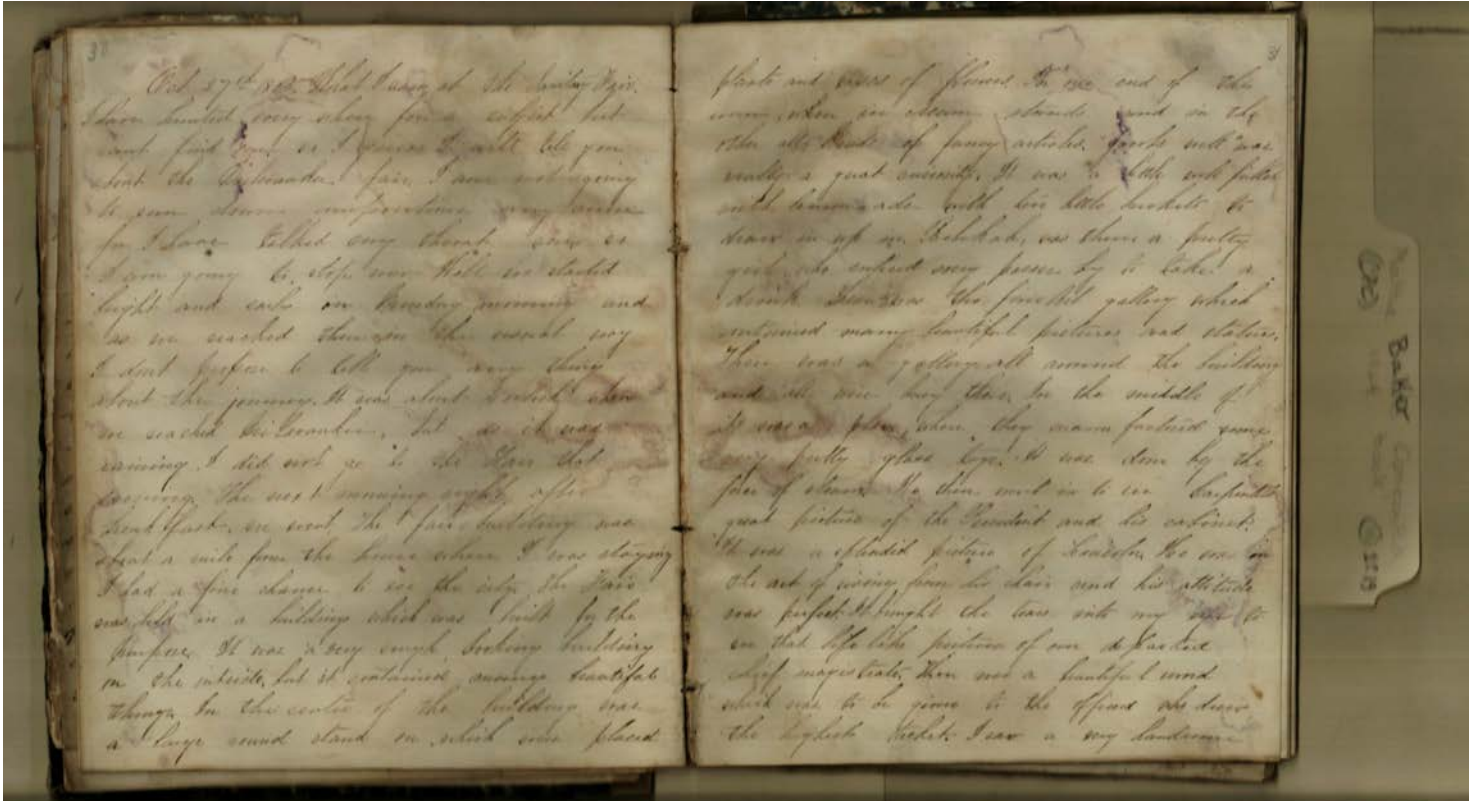 38
Oct 27th 1865. What I saw at the Sanitary Fair.
I have hunted every where for a subject but
cant find one so I guess I will tell you
about the Milwaukee fair. I am not going
to run down compositions any more
for I have talked my throat sore so
I am going to stop now. Well we started
bright and early on Tuesday morning and
as we reached there in the usual way
I dont propose to tell you any thing
about the journey. It was about when
we reached Milwaukee, but as it was
raining I did not go to the Fair that
evening. The next morning right after
breakfast we went. The fair building was
about a mile from the house where I was staying
I had a fine chance to see the city. The Fair
was held in a building which was built for the
purpose. It was a very rough looking building
on the outside, but it contained many beautiful
things. In the center of the building was
a large round stand on which were placed
plants and vases of flowers. At one end of this
were ice cream stands and in the
other all kinds of fancy articles. Jacobs well was
really a great curiosity. It was a little well filled
with lemonade with tin little buckets to
draw it up in. Rebekah, was there a pretty
girl who enticed every passer by to take a
drink. There was the fine art gallery which
contained many beautiful pictures and statues.
There was a gallery all around the building
and in the middle of
it was a place where they manufactured some
very pretty glass toys. It was done by the
force of steam. We then went in to see Carpenters
great picture of the President and his cabinet.
It was a splendid picture of Lincoln. He was in
the act of rising from his chair and his attitude
was perfect. It brought the tears into my eyes to
see that life like picture of our departed
chief magistrate. There was a beautiful sword
which was to be given to the officer who drew
the highest ticket. I saw a very handsome
Baker